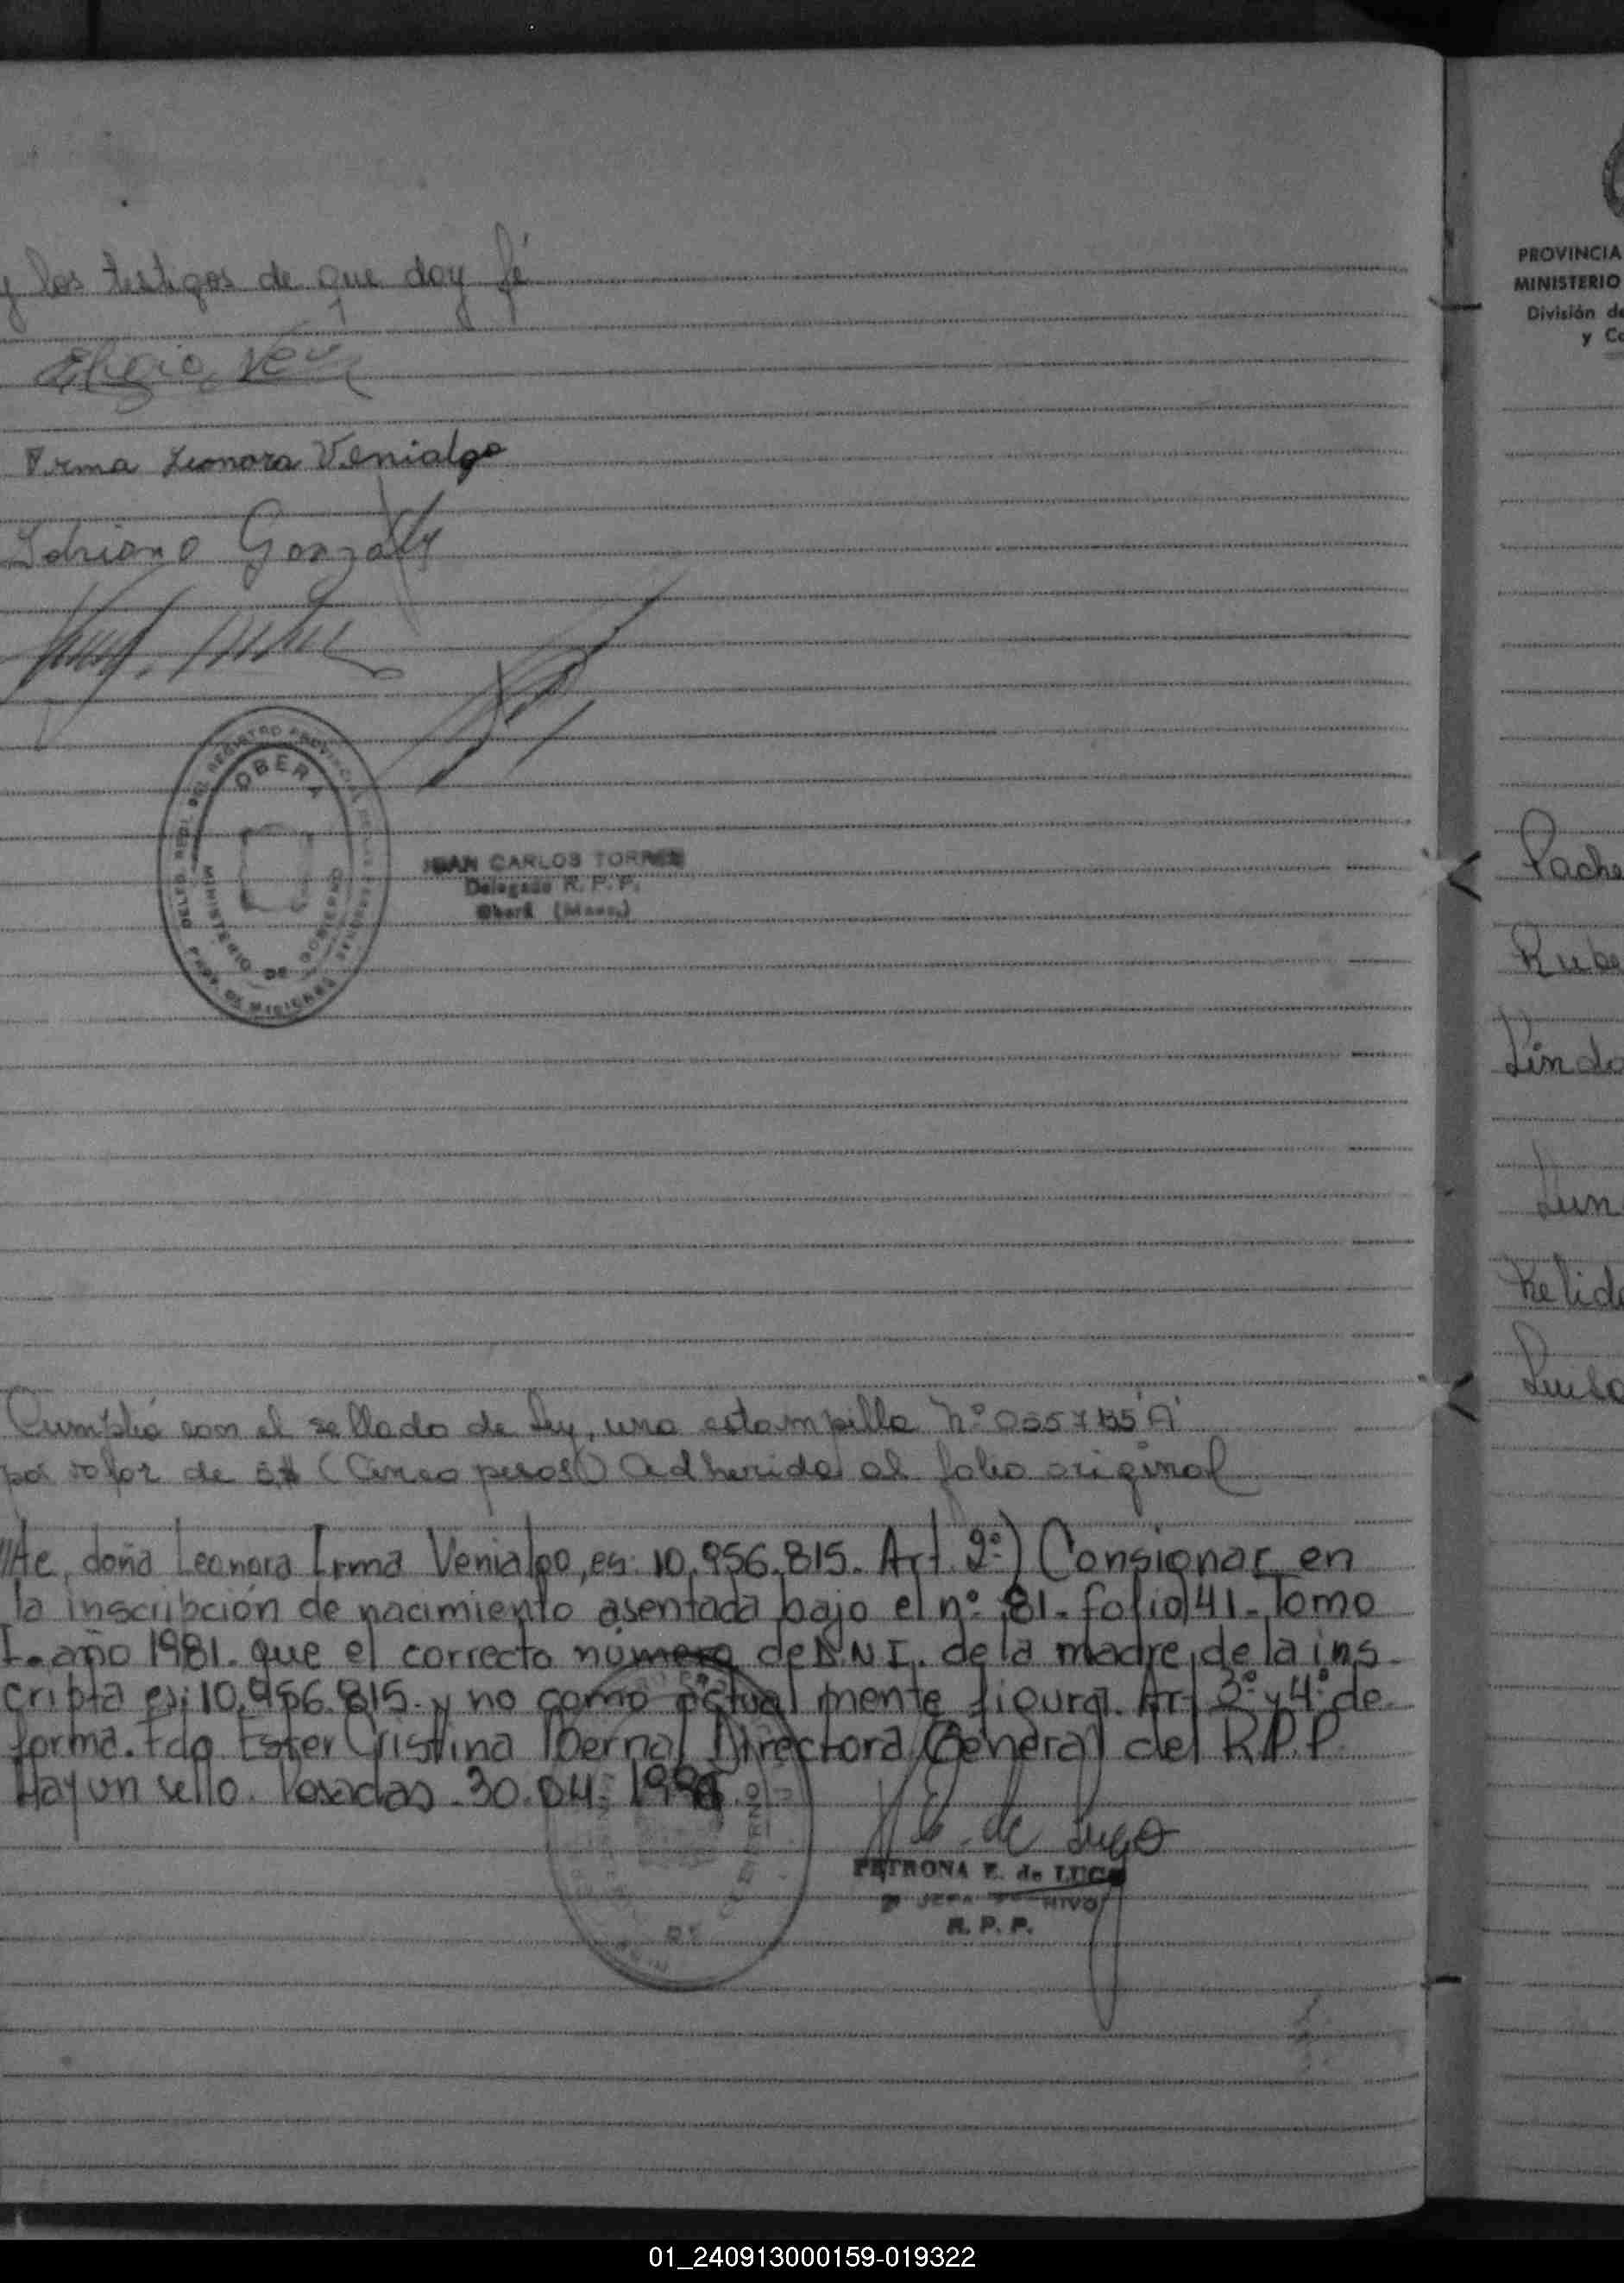 y los testigos de que doy fé
Irma Leonora Venialgo
Gonzalez
DELEG. DEL REGISTRO PROVINCIAL DE LAS PERSONAS
OBERA
MINISTERIO DE GOBIERNO
PROV. DE MISIONES
JUAN CARLOS TORRES
Delegado R. P. P.
Oberá (Mnes.)
Cumplió con el sellado de Ley, una estampilla Nº 0357155 "A"
por valor de 5$ (Cinco pesos) Adherida al folio original
///te, doña Leonora Irma Venialgo, es: 10.956.815. Art. 2º) Consignar en
la inscripción de nacimiento asentada bajo el nº 81- folio 41- Tomo
I- año 1981. que el correcto número de D.N.I. de la madre de la ins-
cripta es: 10.956.815. y no como actual mente figura. Art 3º y 4º de
forma. Fdo. Ester Cristina Bernal Directora General del R.P.P.
Hay un sello. Posadas. 30.04.
de Lugo
PETRONA E. de LUGO
JEFA
R. P. P.
PROVINCIA
MINISTERIO
División de
y
Pache
Rube
Lindo
Lun
Luisa
01_240913000159-019322